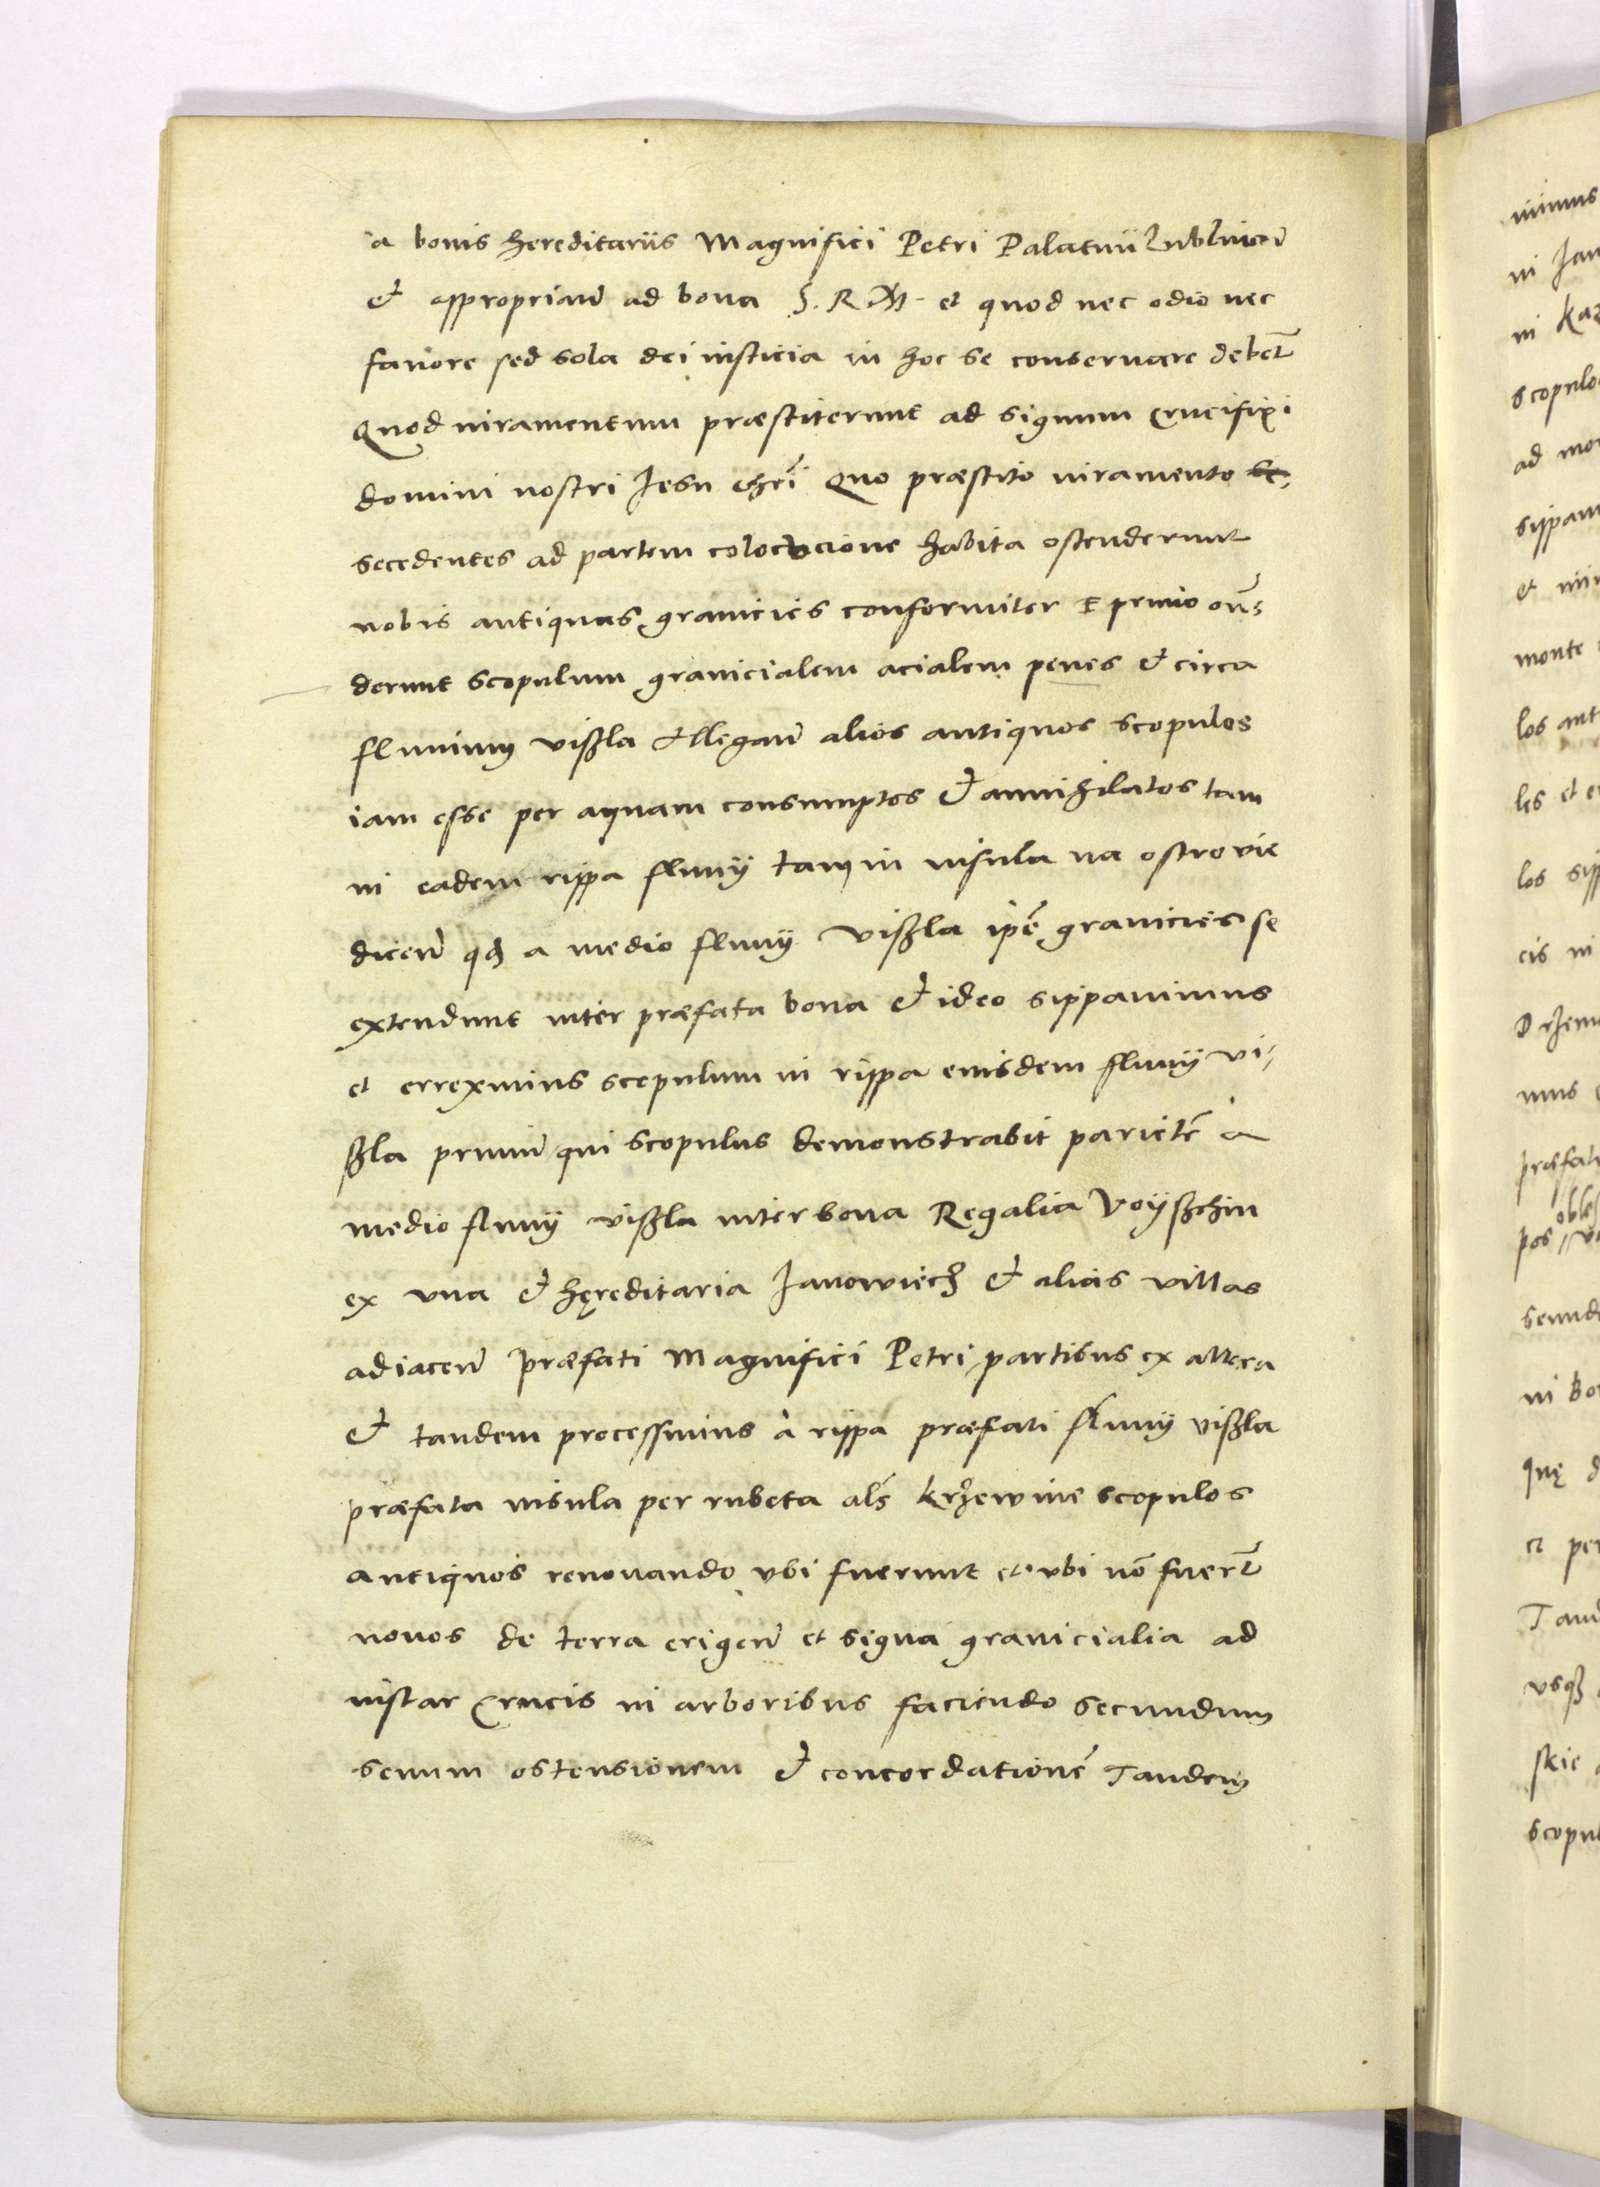 a bonis hereditariis Magnifici Petri Palatini Lublinen̄
et approprian̄ ad bona S. R. M. et quod nec odio nec
fauore sed sola dei iusticia in hoc se conseruare deben̄t
Quod iuramentum præstiterunt ad signum Crucifixi
domini nostri Iesu Chrī Quo præstito iuramento se-
secedentes ad partem colocucione habita ostenderunt
nobis antiquas granicies conformiter Et primo
derunt scopulum granicialem acialem penes et circa
fluuium vißla Allegan̄ alios antiquos scopulos
iam esse per aquam consumptos et annihilatos tam
in eadem rippa fluuij tam in insula na ostrovie
dicen̄ qꝫ a medio fluuij Vißla ipē granicies se
extendunt inter præfata bona et ideo sippauimus
et erreximus scopulum in rippa eiusdem fluuij vi-
ßla primū qui scopulus demonstrabit parietē a
medio fluuij vißla inter bona Regalia Voyßchin
ex vna et hęreditaria Janowiech et alias villas
adiacen̄ præfati Magnifici Petri partibus ex altera
et tandem processimus à rippa præfati fluuij vißla
præfata insula per rubeta al̄s krzewine scopulos
antiquos renouando vbi fuerunt et vbi nō fuerūt
nouos de terra erigen̄ et signa granicialia ad
instar Crucis in arboribus faciendo secundum
senum ostensionem et concordationē Tandem
nimus
in Jan
in kaz
scopulo
ad mo
sippam
et
monte
los ant
les et e
los sip
cis in
nus
præfati
pos
in bo
quę d
et per
Tand
vsqꝫ
skie
scopul